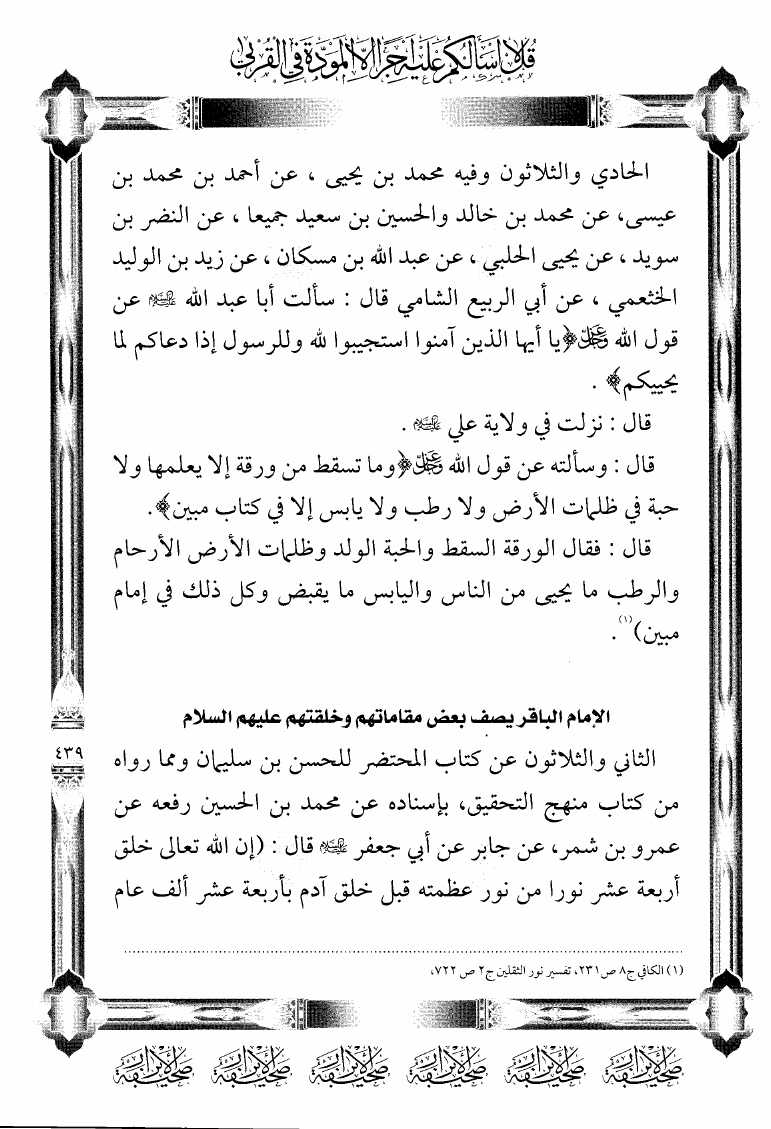 قل لا أسألكم عليه أجرا إلا المودة في القربى
الحادي والثلاثون وفيه محمد بن يحيى ، عن أحمد بن محمد بن
عيسى، عن محمد بن خالد والحسين بن سعيد جميعا ، عن النضر بن
سويد ، عن يحيى الحلبي ، عن عبد الله بن مسكان ، عن زيد بن الوليد
الخثعمي ، عن أبي الربيع الشامي قال : سألت أبا عبد الله عليه السلام عن
قول الله عز وجل ﴿يا أيها الذين آمنوا استجيبوا لله وللرسول إذا دعاكم لما
يحييكم﴾ .
قال : نزلت في ولاية علي عليه السلام .
قال : وسألته عن قول الله عز وجل ﴿وما تسقط من ورقة إلا يعلمها ولا
حبة في ظلمات الأرض ولا رطب ولا يابس إلا في كتاب مبين﴾.
قال : فقال الورقة السقط والحبة الولد وظلمات الأرض الأرحام
والرطب ما يحيى من الناس واليابس ما يقبض وكل ذلك في إمام
مبين)(١).
الإمام الباقر يصف بعض مقاماتهم وخلقتهم عليهم السلام
٤٣٩
الثاني والثلاثون عن كتاب المحتضر للحسن بن سليمان ومما رواه
من كتاب منهج التحقيق، بإسناده عن محمد بن الحسين رفعه عن
عمرو بن شمر، عن جابر عن أبي جعفر عليه السلام قال : (إن الله تعالى خلق
أربعة عشر نورا من نور عظمته قبل خلق آدم بأربعة عشر ألف عام
(١) الكافي ج٨ ص٢٣١، تفسير نور الثقلين ج٢ ص ٧٢٢،